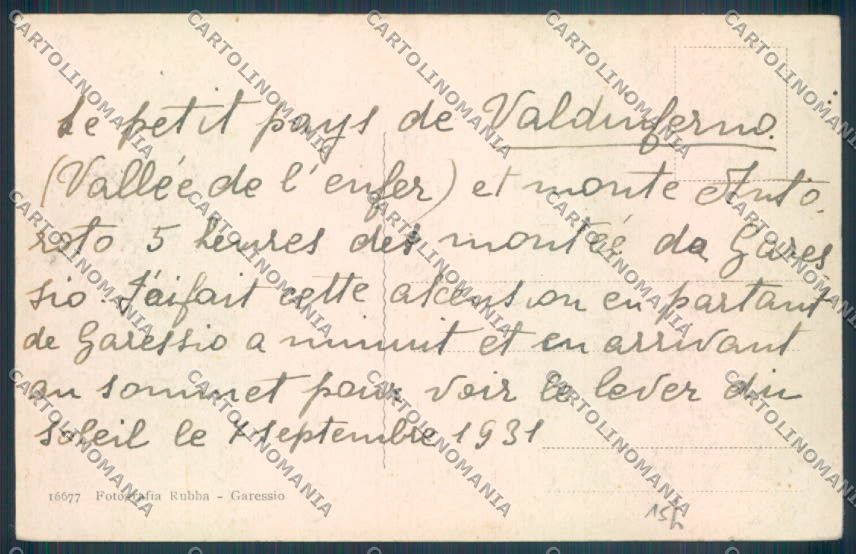 Le petit pays de Valdinferno.
(Vallée de l'enfer) et monte Anto
roto 5 heures de montée da Gares
sio. J'ai fait cette ascension en partant
de Garessio a minuit et en arrivant
au sommet pour voir le lever du
soleil le septembre 1931
16677 Fotografia Rubba - Garessio
CARTOLINOMANIA